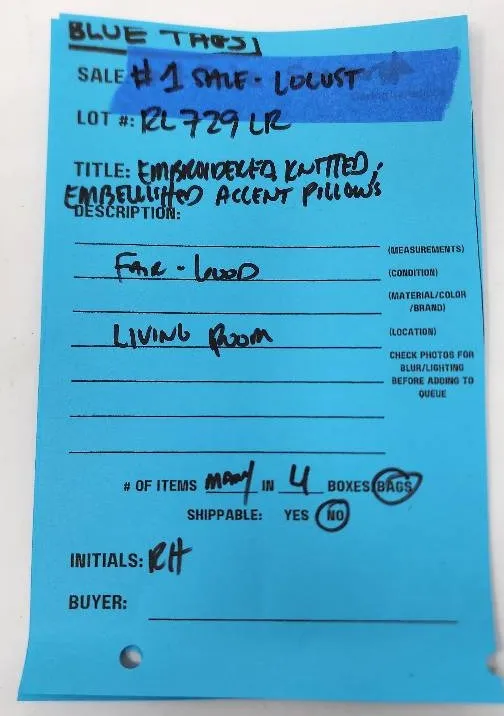 BLUE TAGS!
SALE #1 SALE - LOCUST
LOT #: RL729LR
TITLE: EMBROIDERED, KNITTED,
EMBELLISHED ACCENT PILLOWS
DESCRIPTION:
(MEASUREMENTS)
FAIR - GOOD (CONDITION)
(MATERIAL/COLOR
/BRAND)
LIVING ROOM (LOCATION)
CHECK PHOTOS FOR
BLUR/LIGHTING
BEFORE ADDING TO
QUEUE
# OF ITEMS MANY IN 4 BOXES/BAGS
SHIPPABLE: YES NO
INITIALS: RH
BUYER: